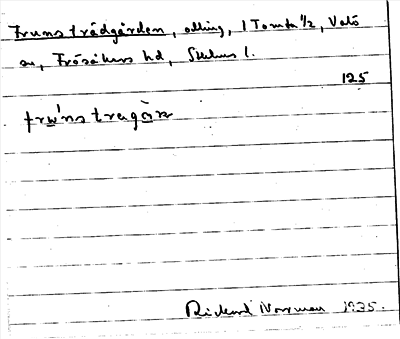 Fruns trädgården, odling, 1 Tomta 1/2, Valö
sn, Frösåkers hd, Sthlms l.
125
frú̀ns tregà̄ṣn
Rickard Norrman 1935.